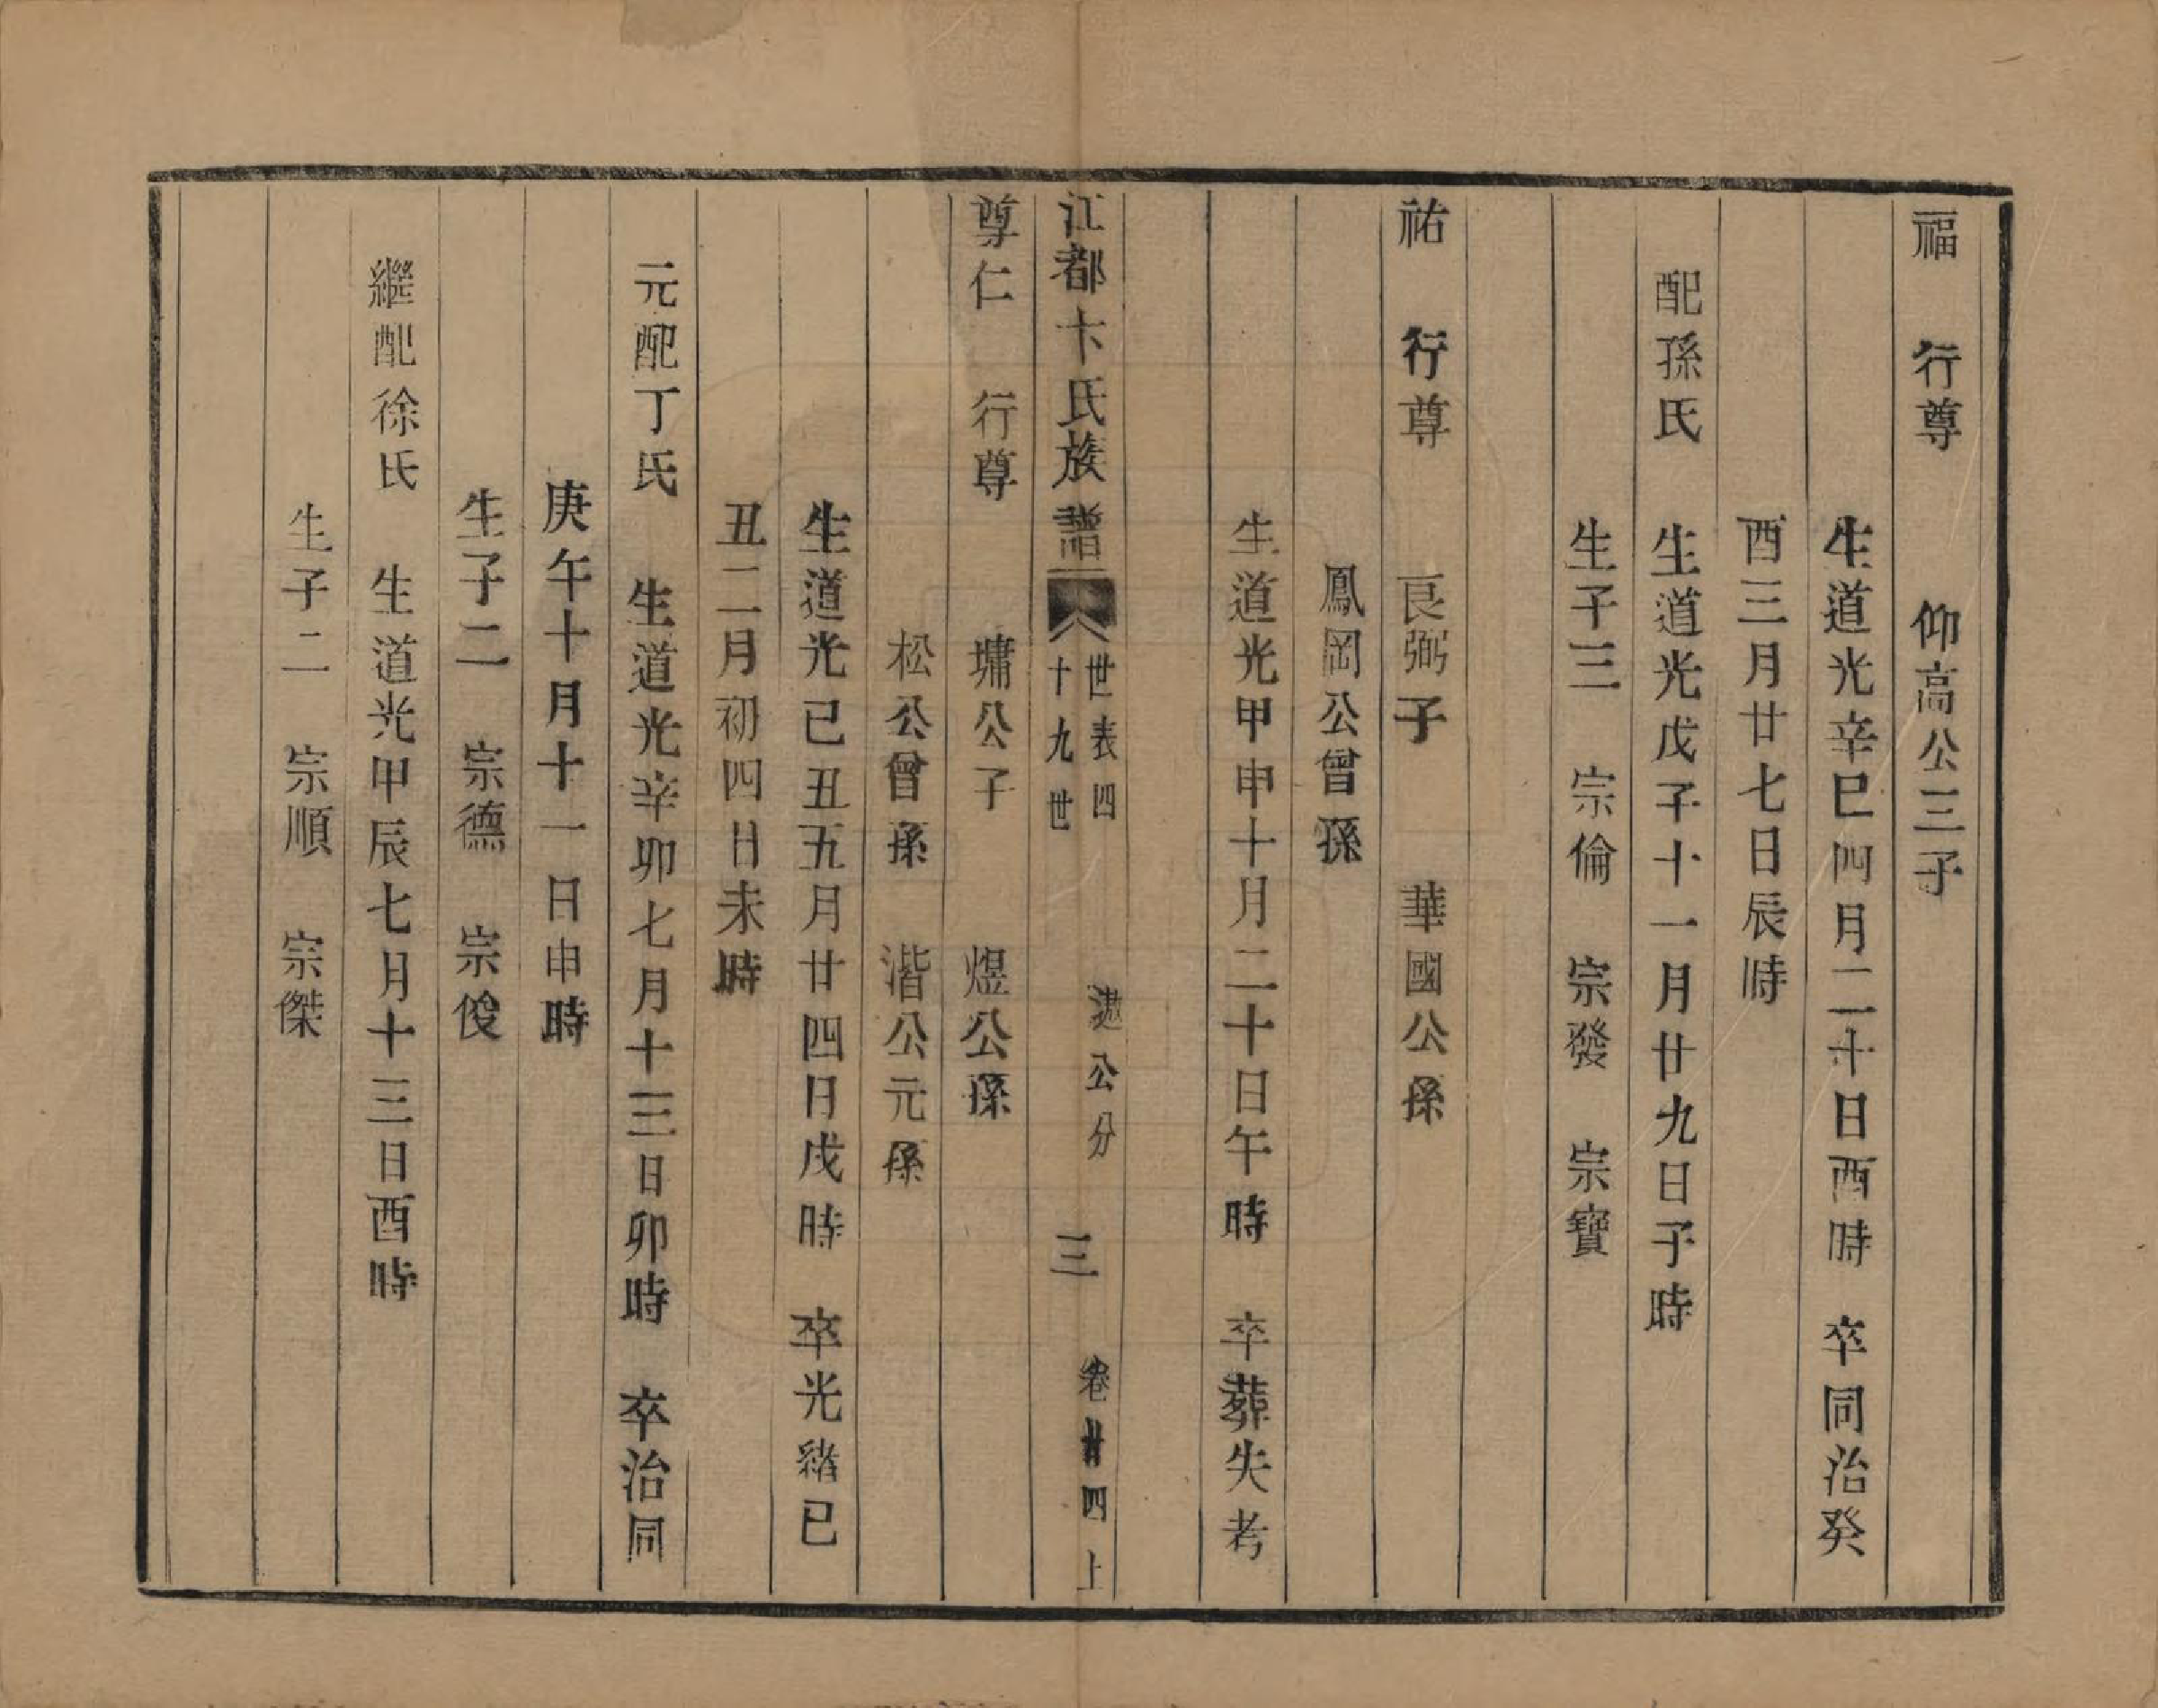 福　行尊　仰高公三子
生道光辛巳四月二十日酉時　卒同治癸
酉三月廿七日辰時
配孫氏　生道光戊子十一月廿九日子時
生子三　宗倫　宗發　宗寶
祐　行尊　良弼子　華國公孫
鳳岡公曾孫
生道光甲申十月二十日午時　卒葬失考
江都卞氏族譜　世表四　十九世　公分　三　卷廿四上
尊仁　行尊　墉公子　煜公孫
松公曾孫　湝公元孫
生道光己丑五月廿四日戌時　卒光緒己
丑二月初四日未時
元配丁氏　生道光辛卯七月十三日卯時　卒同治
庚午十月十一日申時
生子二　宗德　宗俊
繼配徐氏　生道光甲辰七月十三日酉時
生子二　宗順　宗傑